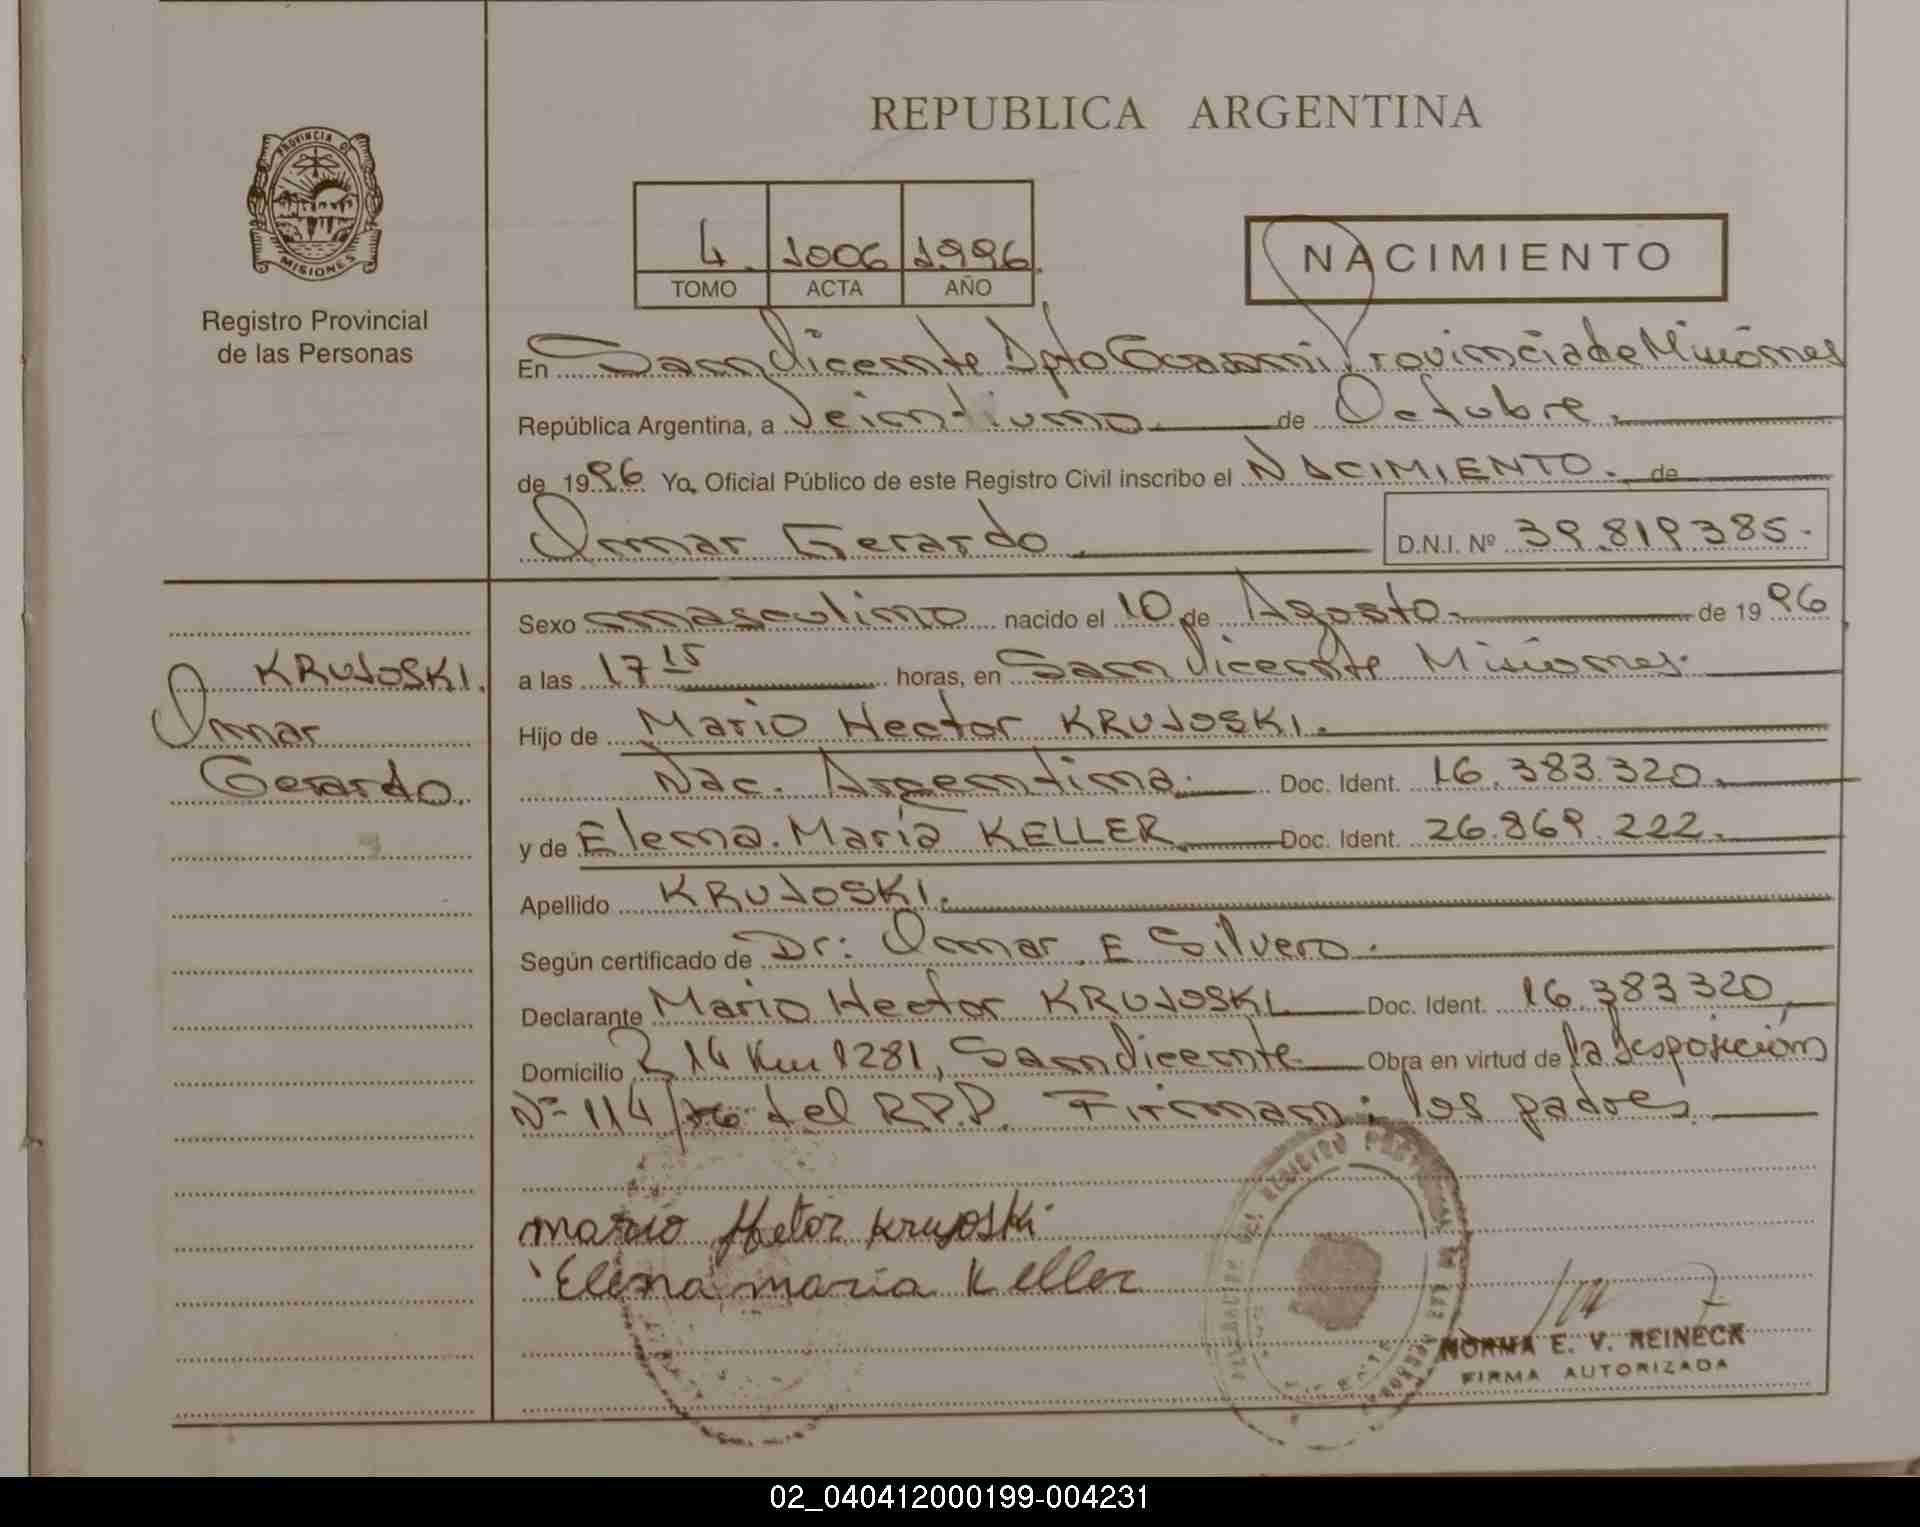 REPUBLICA ARGENTINA
PROVINCIA D
MISIONES
Registro Provincial
de las Personas
4 1006 1996
TOMO ACTA AÑO
NACIMIENTO
En San Vicente Dpto Guarani Provincia de Misiones
República Argentina, a Veintiuno de Octubre.
de 1996 Yo, Oficial Público de este Registro Civil inscribo el NACIMIENTO. de
Omar Gerardo D.N.I. Nº 39.819.385.
KRUJOSKI.
Omar
Gerardo.
Sexo masculino nacido el 10 de Agosto. de 1996
a las 17 15 horas, en San Vicente Misiones.
Hijo de Mario Hector KRUJOSKI.
Nac. Argentina. Doc. Ident. 16.383.320.
y de Elena. Maria KELLER. Doc. Ident. 26.869.222.
Apellido KRUJOSKI.
Según certificado de Dr: Omar E Silvero.
Declarante Mario Hector KRUJOSKI. Doc. Ident. 16.383320,
Domicilio 14 Km 1281, San Vicente Obra en virtud de la desposición
Nº 114/ del R.P.P. Firman: los padres.
mario Hetor krujoski
Elena maria Keller
NORMA E. V. REINECK
FIRMA AUTORIZADA
02_040412000199-004231